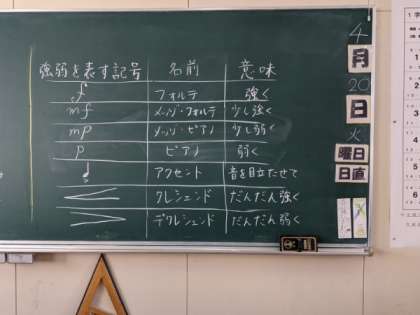 強弱を表す記号 名前 意味
f フォルテ 強く
mf メッゾ・フォルテ 少し強く
mp メッゾ・ピアノ 少し弱く
p ピアノ 弱く
アクセント 音を目立たせて
クレシェンド だんだん強く
デクレシェンド だんだん弱く
4
月
20
日
火
曜日
日直